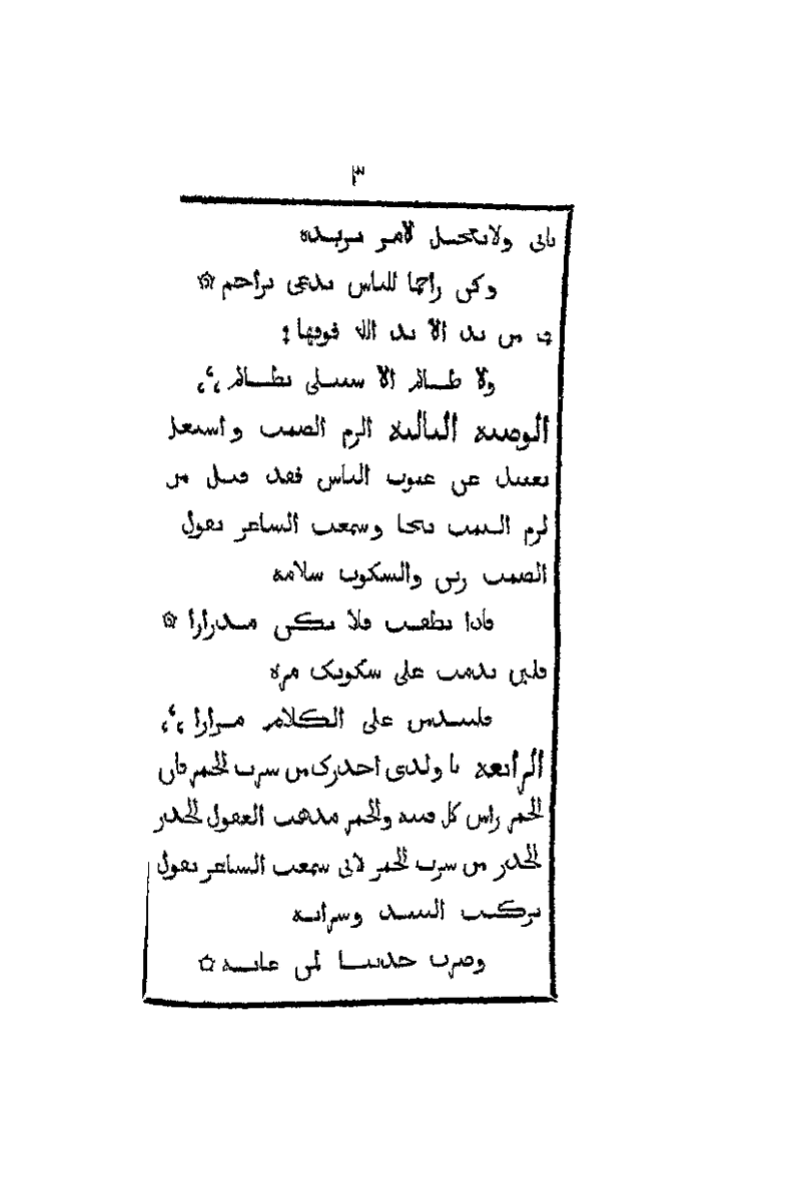 ٣
تانى ولاتعجل لامر تريده
وكن راحما للناس تدعى براحم
فما من يد الا يد الله فوقها
ولا ظالم الا سيبلى بظالم
الوصية الثالثة الزم الصمت واشتغل
بعيبك عن عيوب الناس فقد قيل من
لزم الصمت نجا وسمعت الشاعر يقول
الصمت زين والسكوت سلامة
فاذا نطقت فلا تكن مدرارا
فلئن ندمت على سكوتك مرة
فلتندمن على الكلام مرارا
الرابعة يا ولدى احذرك من شرب الخمر فان
الخمر راس كل فتنة والخمر مذهب العقول الحذر
الحذر من شرب الخمر لانى سمعت الشاعر يقول
تركت النبيذ وشرابه
وصرت حديثا لمن عابه